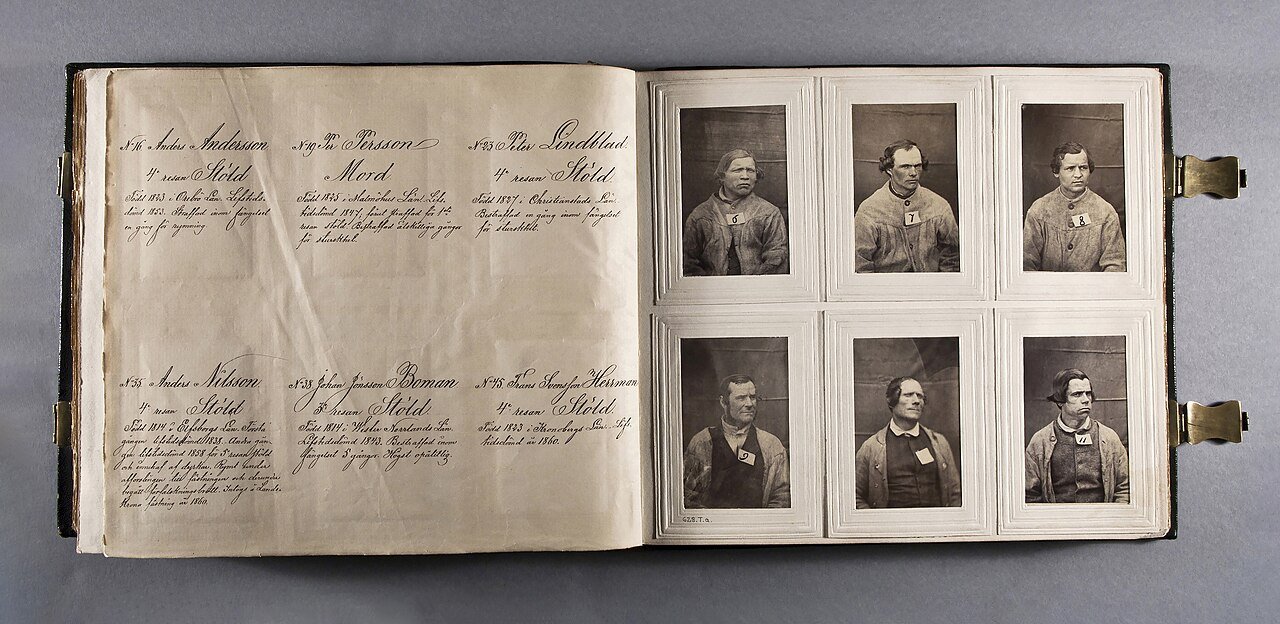 N:16 Anders Andersson
4e resan Stöld
Född 1823 i Örebro Län. Lifstids-
dömd 1853. Straffad inom fängelset
en gång för rymning.
N:19 Per Persson
Mord
Född 1823 i Malmöhus Län. Lifs-
tidsdömd 1847, förut straffad för 1sta
resan stöld. Bestraffad åtskilliga gånger
för
N:23 Peter Lindblad.
4e resan Stöld
Född 1827 i Christianstads Län.
Bestraffad en gång inom fängelset
för
N:35 Anders Nilsson
4e resan Stöld
Född 1814 i Elfsborgs Län. Första
gången lifstidsdömd 1838. Andra gån-
gen lifstidsdömd 1858 för 5e resan stöld
och innehaf af dyrkar. Rymt under
från fästningen och derunder
begått Inlagd i Lands-
krona fästning år 1860.
N:38 Johan Jönsson Boman
3e resan Stöld
Född 1814 i Wester Norrlands Län.
Lifstidsdömd 1843. Bestraffad inom
fängelset 5 gånger. Högst opålitlig.
N:45 Frans Herrman
4e resan Stöld.
Född 1823 i Kronobergs Län. Lifs-
tidsdömd år 1860.
6
7
8
9
11
GZS.T.a.